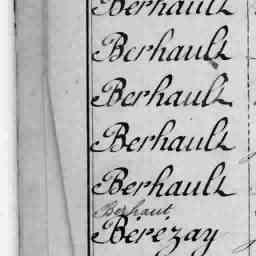 Berhault
Berhault
Berhault
Berhault
Berhault
Berhaut
Bérézay